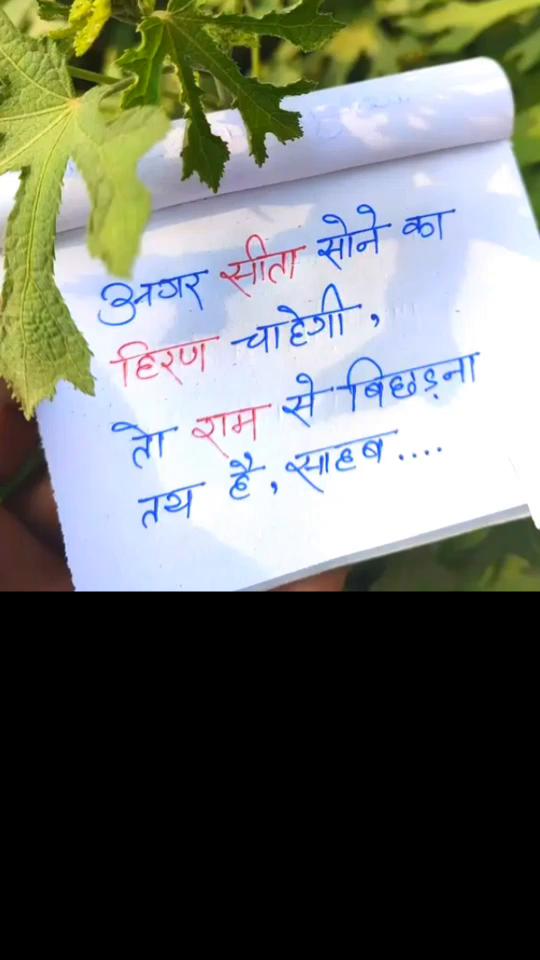 अगर सीता सोने का
हिरण चाहेगी,
तो राम से बिछड़ना
तय है, साहब....